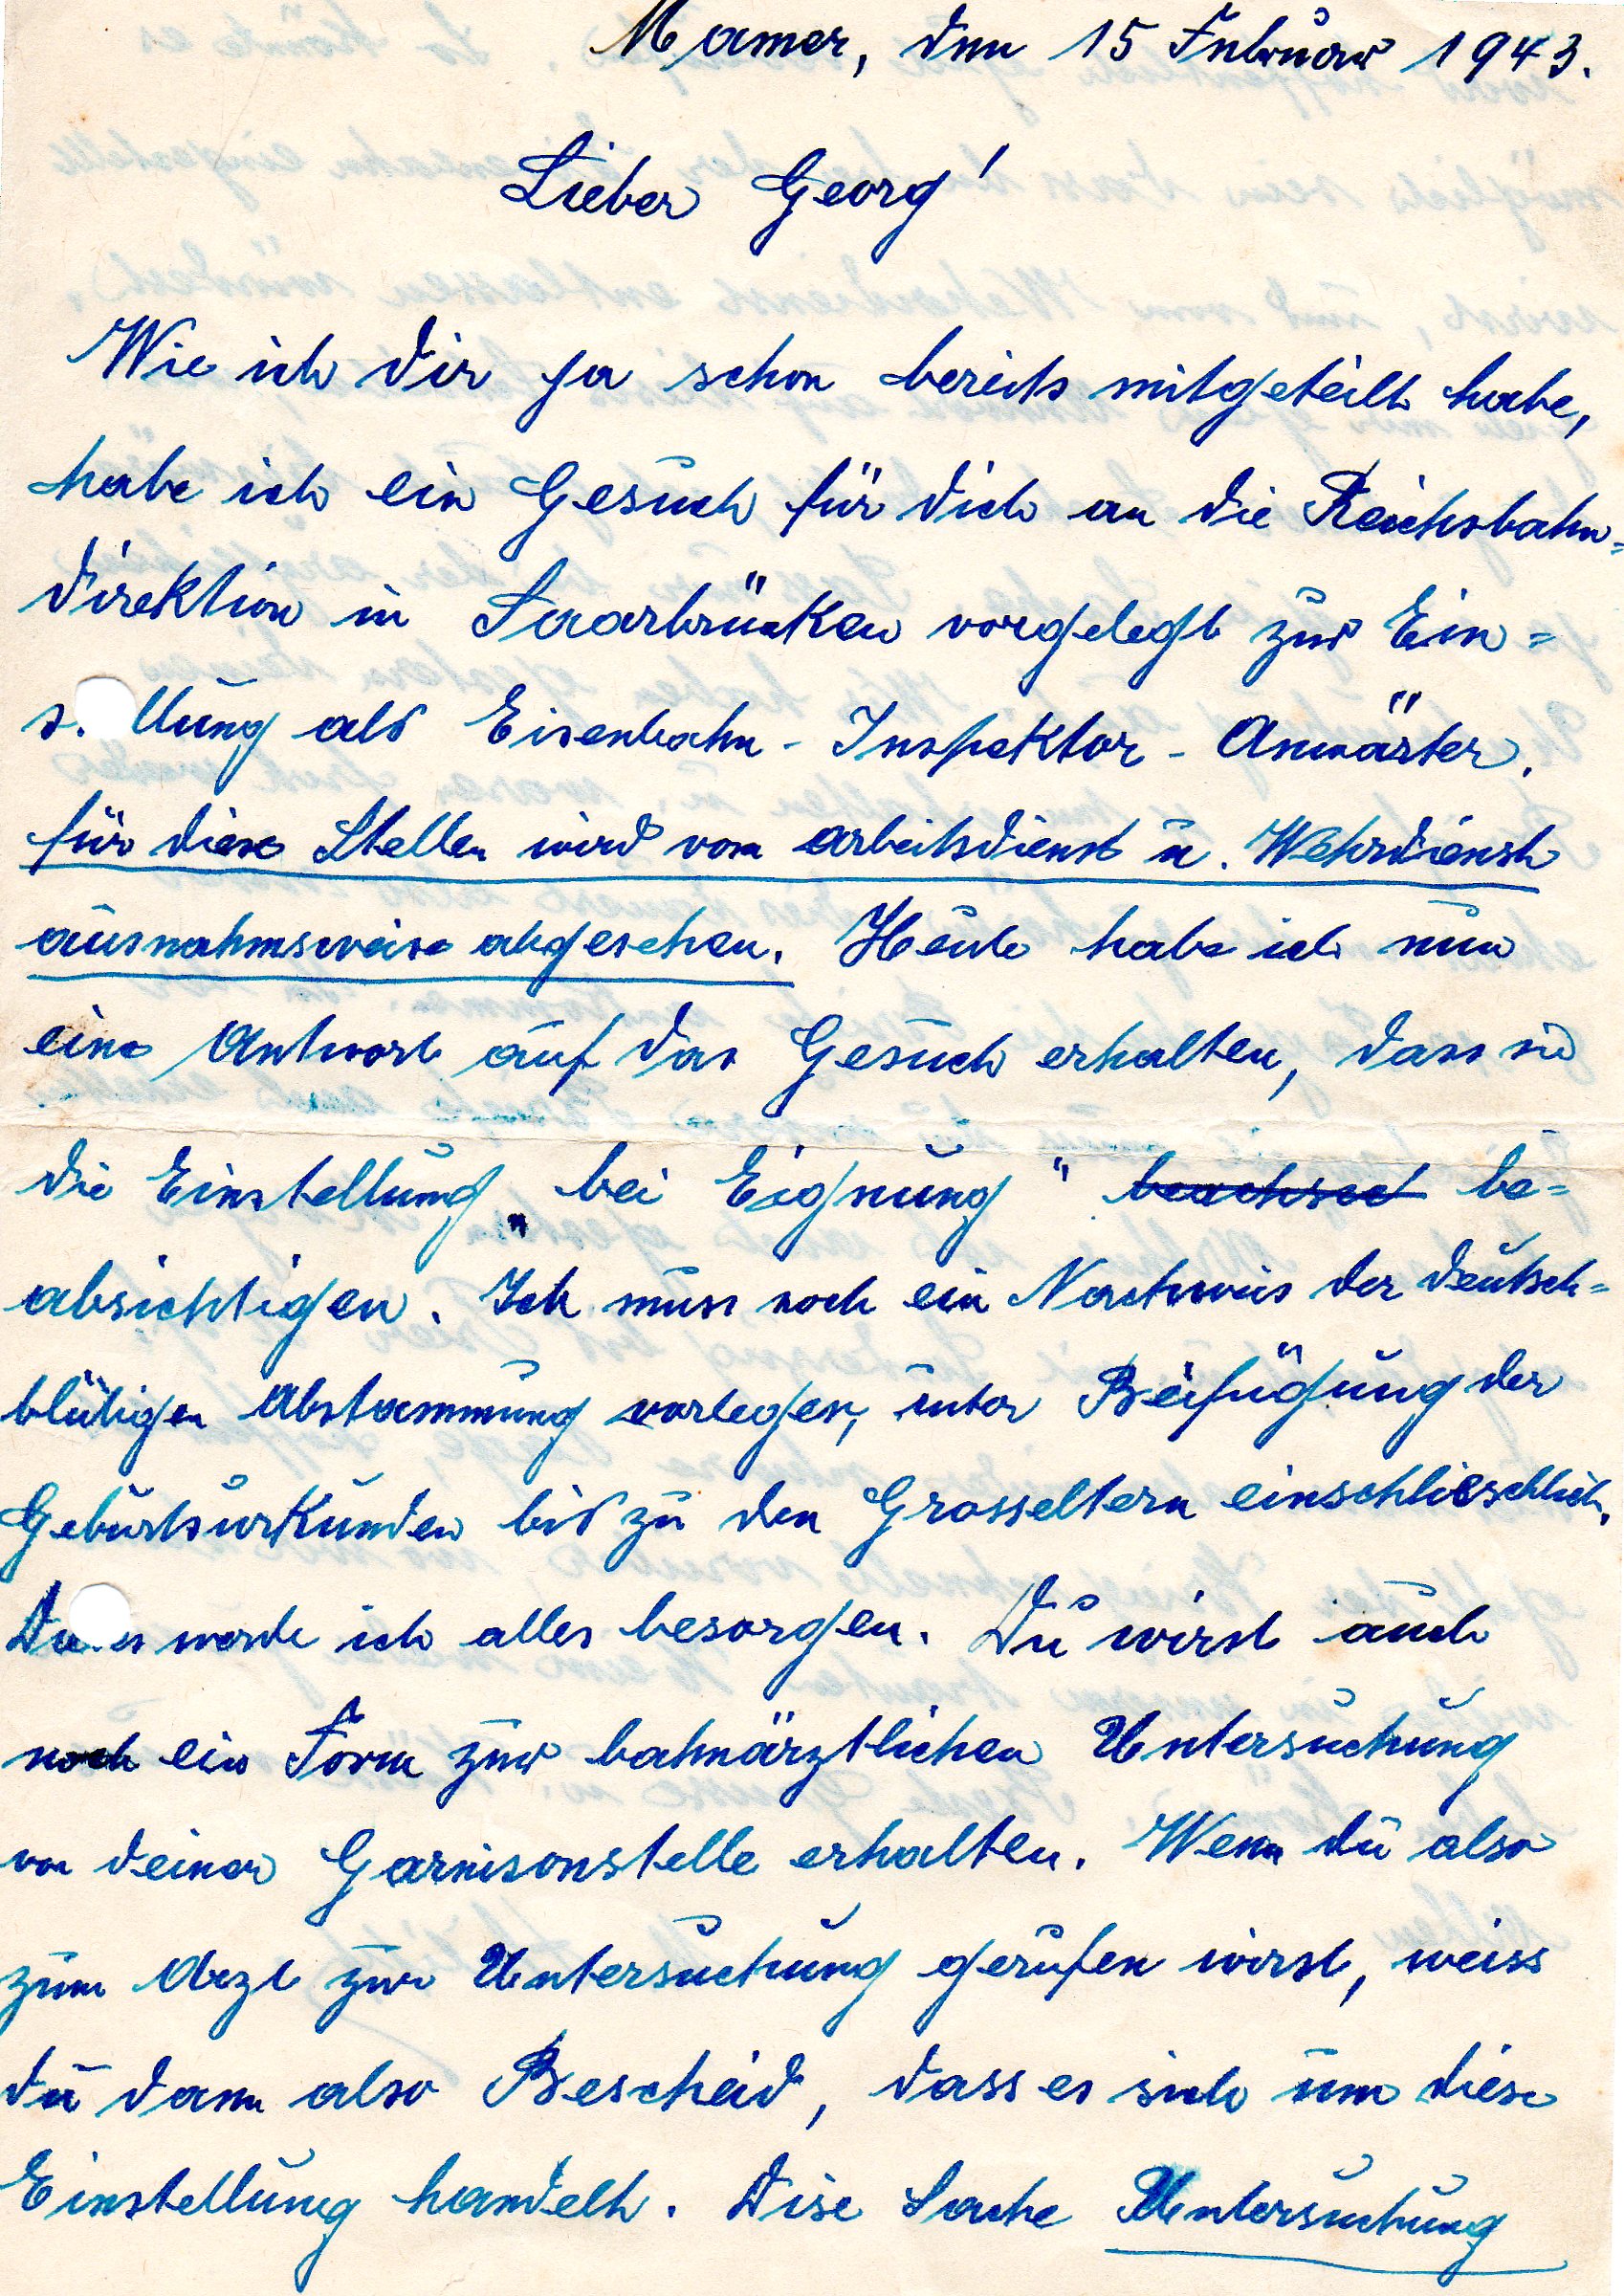 Mamer, den 15 Februar 1943.
Lieber Georg!
Wie ich dir ja schon bereits mitgeteilt habe,
habe ich ein Gesuch für dich an die Reichsbahn=
direktion in Saarbrücken vorgelegt zur Ein=
s llung als Eisenbahn - Inspektor - Anwärter.
für diese Stellen wird vom arbeitsdienst u. Wehrdienst
ausnahmsweise abgesehen. Heute habe ich nun
eine Antwort auf das Gesuch erhalten, dass sie
die Einstellung „bei Eignung" be=
absichtigen. Ich muss noch ein Nachweis der deutsch=
blütigen Abstammung vorlegen, unter Beifügung der
Geburtsurkunden bis zu den Grosseltern einschlieschlich.
werde ich alles besorgen. Du wirst auch
noch ein Form zur bahnärztlichen Untersuchung
von deiner Garnisonstelle erhalten. Wenn du also
zum Arzt zur Untersuchung gerufen wirst, weiss
du dann also Bescheid, dass es sich um diese
Einstellung handelt. Dise Sache Untersuchung